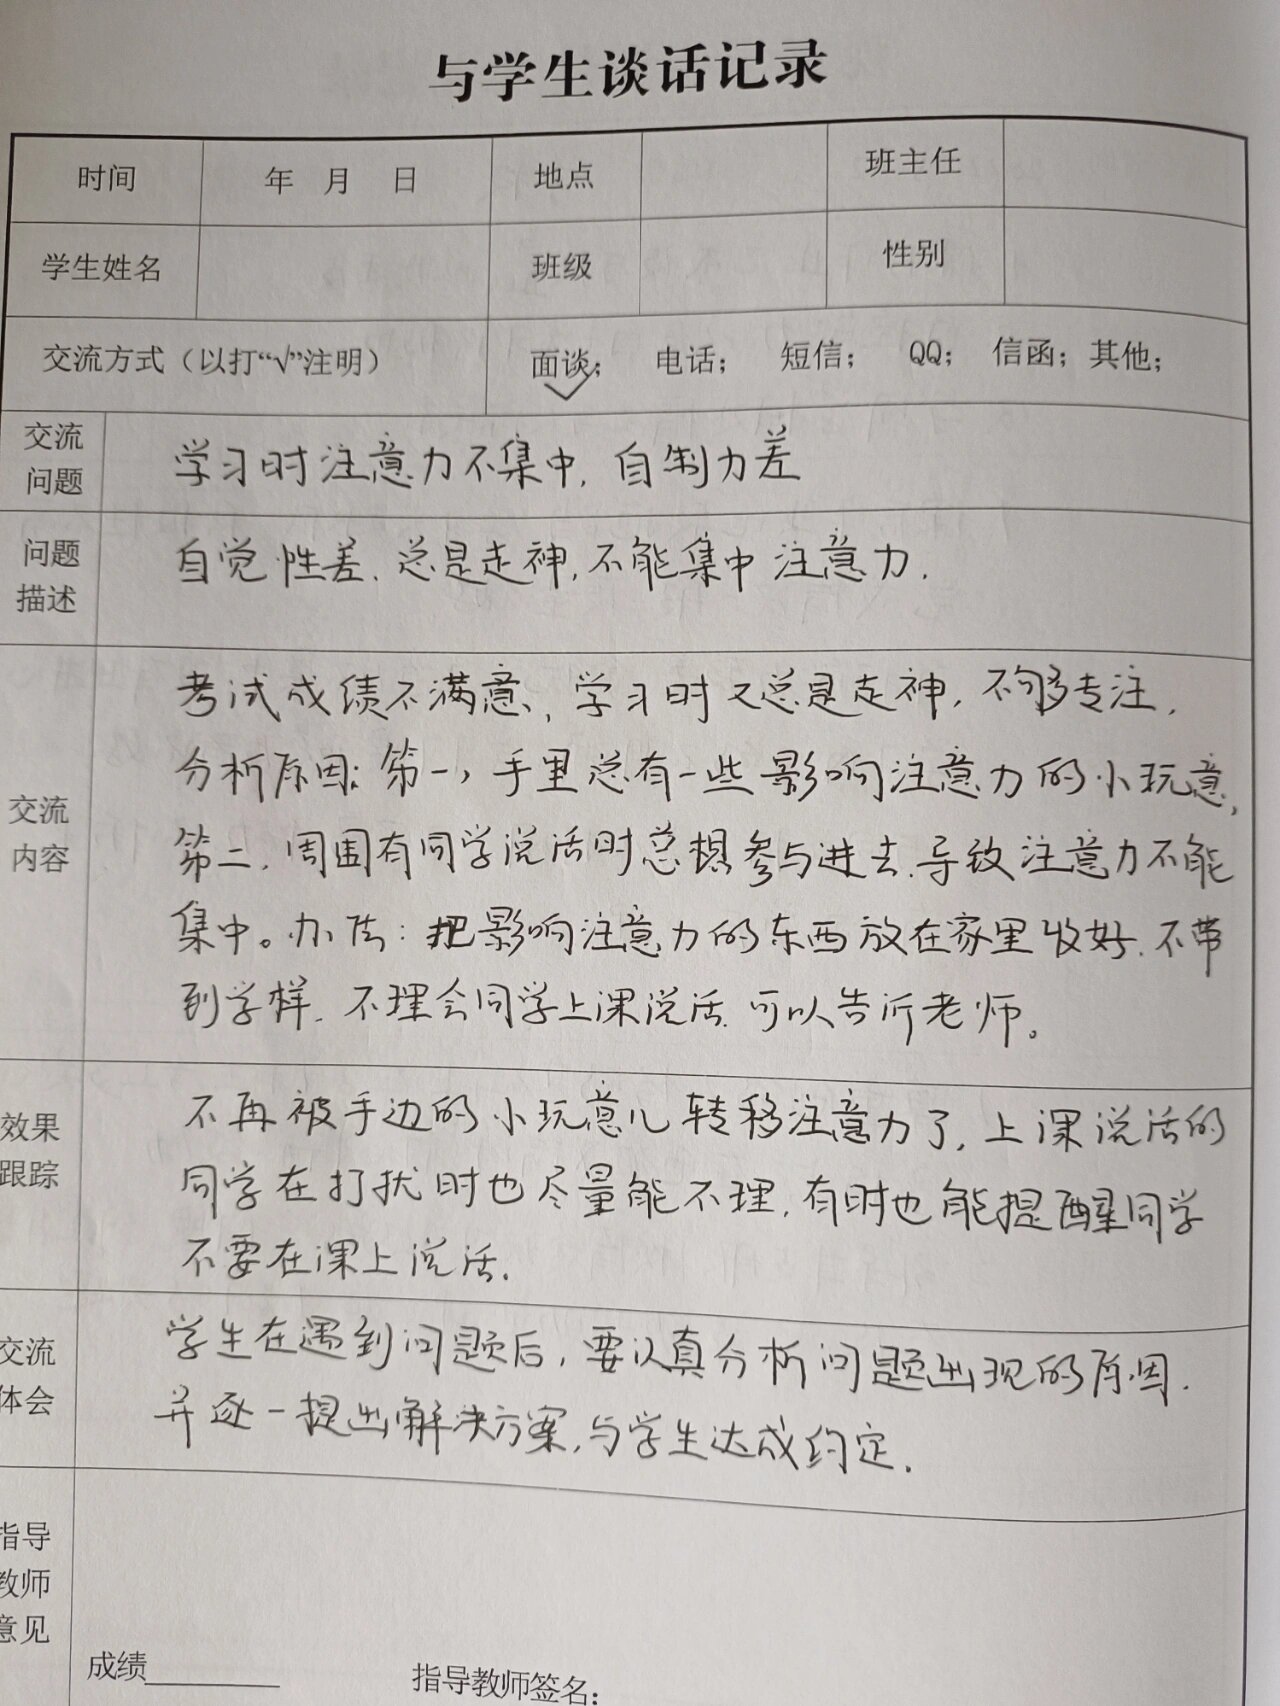 与学生谈话记录
时间 年 月 日 地点 班主任
学生姓名 班级 性别
交流方式（以打“√”注明） 面谈； 电话； 短信； QQ； 信函； 其他；
交流
问题
学习时注意力不集中，自制力差
问题
描述
自觉性差，总是走神，不能集中注意力．
交流
内容
考试成绩不满意，学习时又总是走神，不够专注，
分析原因：第一，手里总有一些影响注意力的小玩意，
第二，周围有同学说话时总想参与进去，导致注意力不能
集中。办法：把影响注意力的东西放在家里收好，不带
到学样，不理会同学上课说话，可以告诉老师。
效果
跟踪
不再被手边的小玩意儿转移注意力了，上课说话的
同学在打扰时也尽量能不理，有时也能提醒同学
不要在课上说话．
交流
体会
学生在遇到问题后，要认真分析问题出现的原因，
并逐一提出解决方案，与学生达成约定．
指导
教师
意见
成绩________ 指导教师签名：